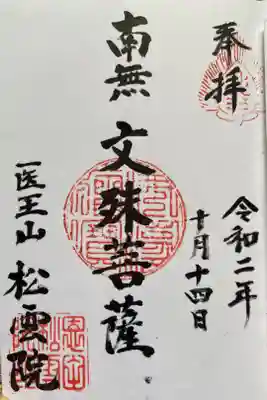 奉拝
令和二年
十月十四日
南無
文殊菩薩
医王山
松雲院